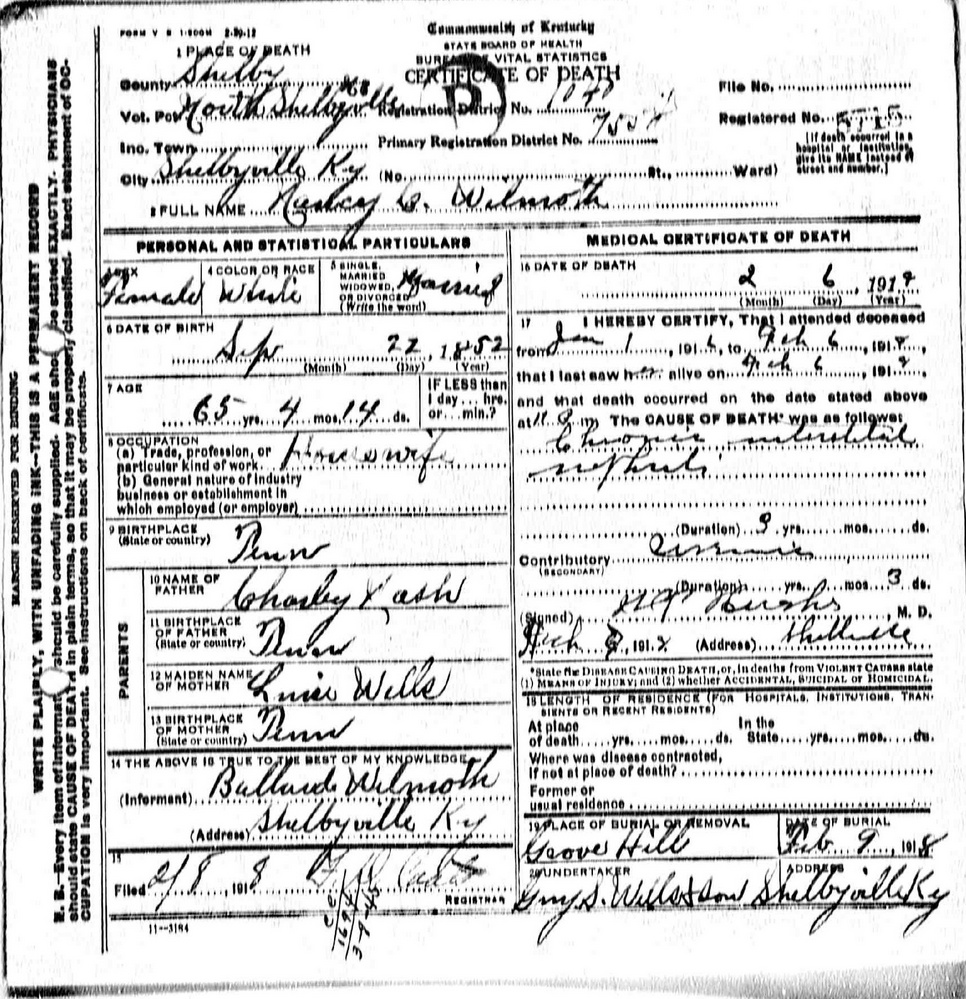 FORM V S 1-500M 2-20-12
Commonwealth of Kentucky
STATE BOARD OF HEALTH
BUREAU OF VITAL STATISTICS
CERTIFICATE OF DEATH
1 PLACE OF DEATH
County Shelby
Vot. Pct North Shelbyville Registration District No. 1040
File No.
Registered No.
Ino. Town Primary Registration District No.
City Shelbyville Ky (No. St., Ward)
[If death occurred in a hospital or institution, give its NAME instead of street and number.]
2 FULL NAME Nancy C. Wilmoth
PERSONAL AND STATISTICAL PARTICULARS
3 SEX Female
4 COLOR OR RACE White
5 SINGLE, MARRIED WIDOWED, OR DIVORCED (Write the word) Married
6 DATE OF BIRTH
Sep 22, 1852
(Month) (Day) (Year)
7 AGE
65 yrs. 4 mos. 14 ds.
IF LESS than 1 day... hrs. or... min.?
8 OCCUPATION
(a) Trade, profession, or particular kind of work Housewife
(b) General nature of industry business or establishment in which employed (or employer)
9 BIRTHPLACE
(State or country) Tenn
PARENTS
10 NAME OF FATHER Charley Cash
11 BIRTHPLACE OF FATHER (State or country) Tenn
12 MAIDEN NAME OF MOTHER Luise Wells
13 BIRTHPLACE OF MOTHER (State or country) Tenn
14 THE ABOVE IS TRUE TO THE BEST OF MY KNOWLEDGE
(Informant) Ballard Wilmoth
(Address) Shelbyville Ky
15
Filed 2/8, 1918
REGISTRAR
11-3184
MEDICAL CERTIFICATE OF DEATH
16 DATE OF DEATH
2 6, 1918
(Month) (Day) (Year)
17 I HEREBY CERTIFY, That I attended deceased
from Jan 1, 1916, to Feb 6, 1918,
that I last saw her alive on Feb 6, 1918
and that death occurred on the date stated above
at m. The CAUSE OF DEATH* was as follows:
Chronic interstitial
nephritis
(Duration) 3 yrs. mos. ds.
Contributory Uremia
(SECONDARY)
(Duration) yrs. mos. 3 ds.
(Signed) M. D.
Feb, 1918 (Address) Shelbyville
*State the DISEASE CAUSING DEATH, or, in deaths from VIOLENT CAUSES state
(1) MEANS OF INJURY; and (2) whether ACCIDENTAL, SUICIDAL OR HOMICIDAL.
18 LENGTH OF RESIDENCE (FOR HOSPITALS, INSTITUTIONS, TRANSIENTS OR RECENT RESIDENTS)
At place of death yrs. mos. ds. In the State yrs. mos. ds.
Where was disease contracted, If not at place of death?
Former or usual residence
19 PLACE OF BURIAL OR REMOVAL
Grove Hill
DATE OF BURIAL
Feb 9, 1918
20 UNDERTAKER
Guy S. Wells & son
ADDRESS
Shelbyville Ky
MARGIN RESERVED FOR BINDING
WRITE PLAINLY, WITH UNFADING INK--THIS IS A PERMANENT RECORD
N. B.-Every item of information should be carefully supplied. AGE should be stated EXACTLY. PHYSICIANS
should state CAUSE OF DEATH in plain terms, so that it may be properly classified. Exact statement of OC-
CUPATION is very important. See instructions on back of certificate.